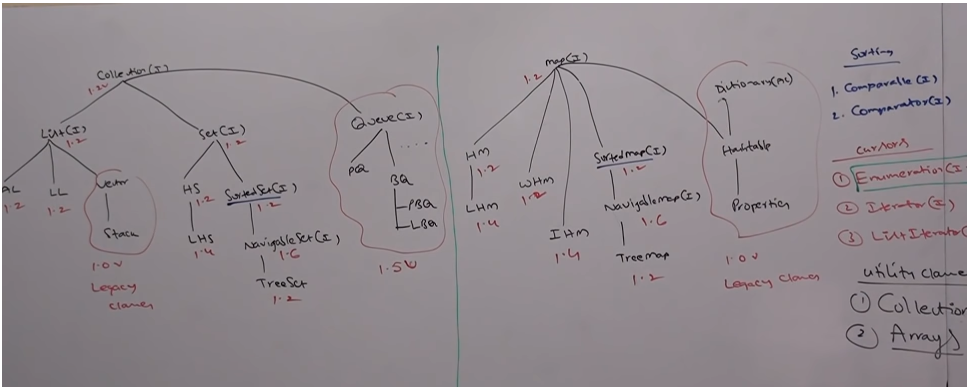 Collection(I)
1.2v
List(I)
1.2
AL
1.2
LL
1.2
Vector
Stack
1.0 v
Legacy
classes
Set(I)
1.2
HS
1.2
LHS
1.4
SortedSet(I)
1.2
NavigableSet(I)
1.6
TreeSet
1.2
Queue(I)
....
PQ
BQ
PBQ
LBQ
1.5v
map(I)
1.2
HM
1.2
LHM
1.4
WHM
1.2
IHM
1.4
Sortedmap(I)
1.2
Navigablemap(I)
1.6
Treemap
1.2
Dictionary(AC)
Hashtable
Properties
1.0 v
Legacy classes
Sorting
1. Comparable (I)
2. Comparator(I)
Cursors
① Enumeration(I
② Iterator(I)
③ ListIterator(
utility classe
① Collection
② Arrays